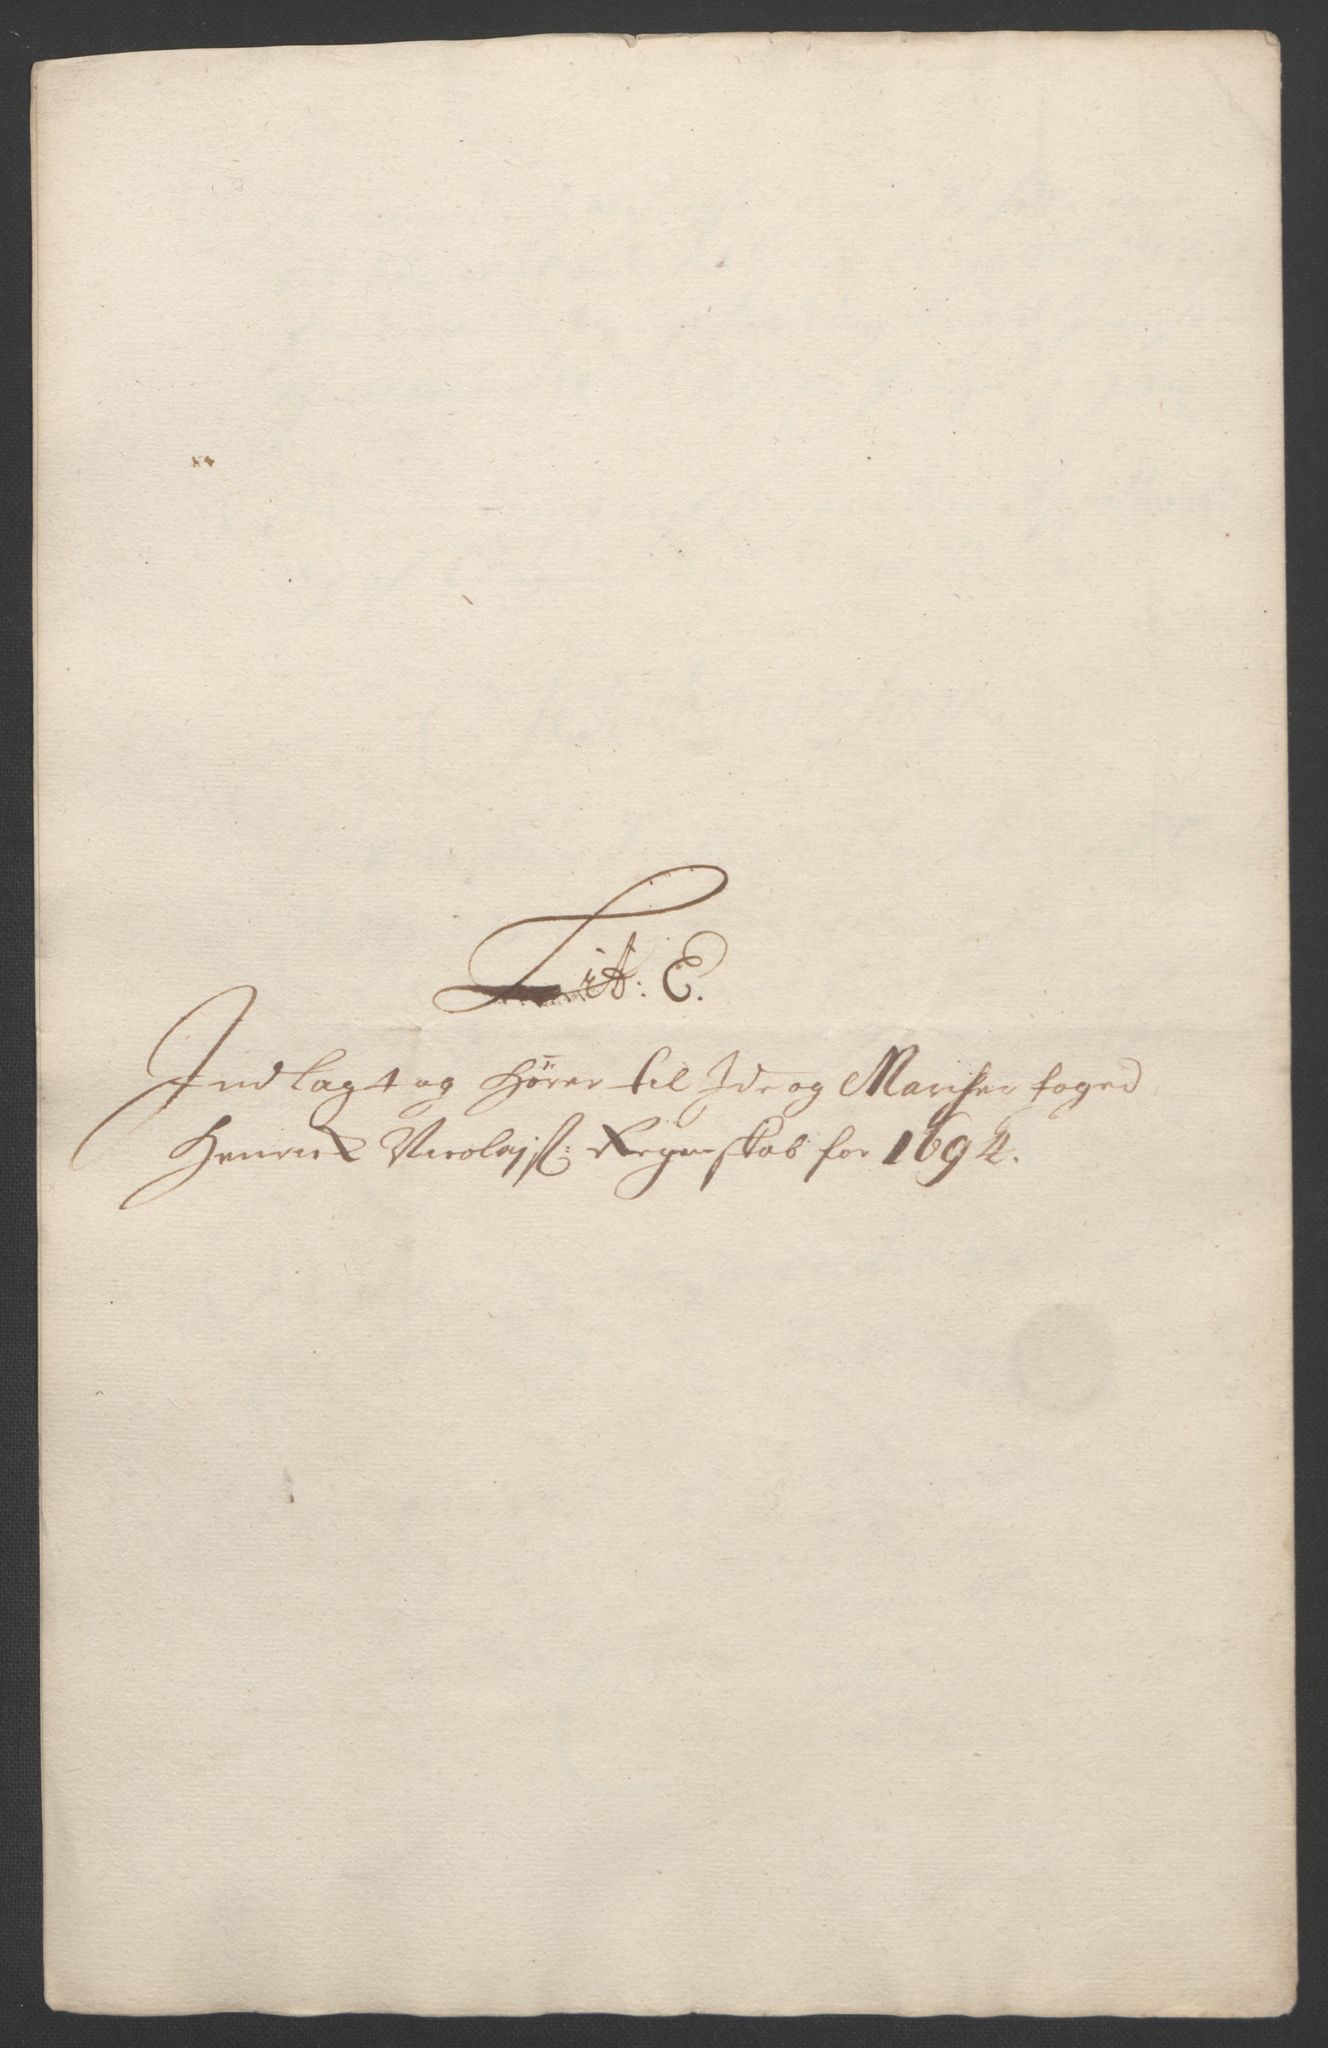 Lit: E.
Indlagt og hörer til Ide og Marcher foged
Henrick Nicolajss: Regenskab for 1694.